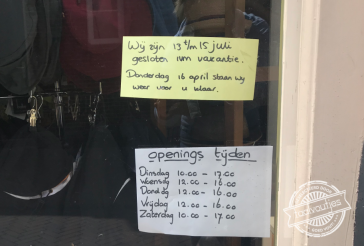 Wij zijn 13 t/m 15 juli
gesloten ivm vakantie.
Donderdag 16 april staan wij
weer voor u klaar.
openings tijden
Dinsdag 10.00 - 17.00
Woensdag 12.00 - 16.00
Donderdag 12.00 - 16.00
Vrijdag 12.00 - 16.00
Zaterdag 10.00 - 17.00
taalvoutjes